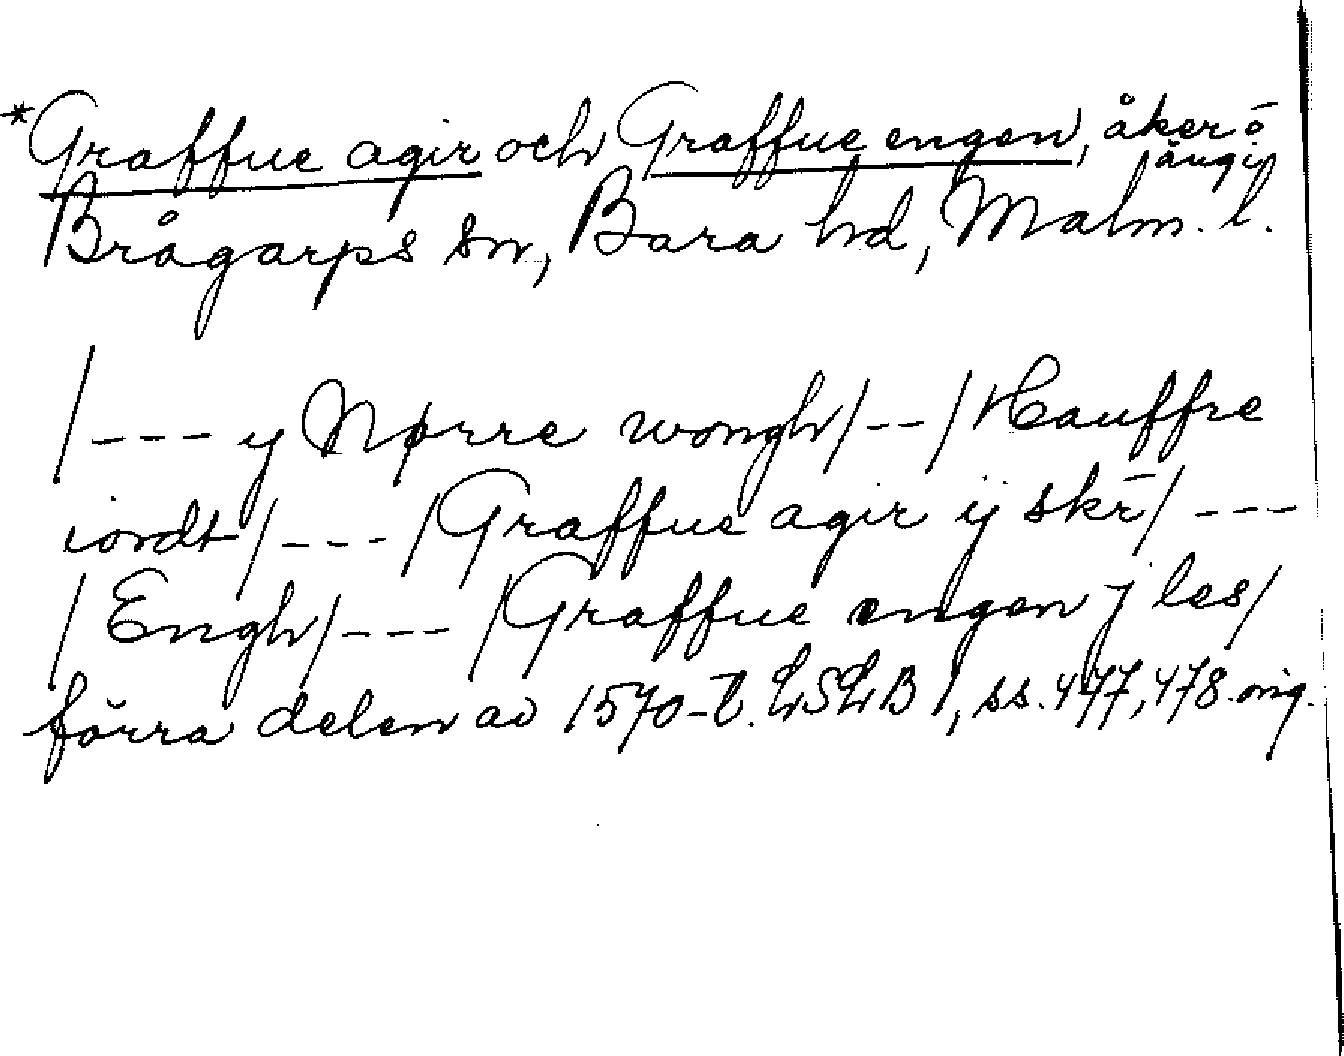 *Graffue agir och Graffue engen, åker o
äng i
Brågarps sn, Bara hd, Malm. l.
/---y Nørre wongh/--/Hauffre
iordt/---/Graffue agir ij skr/---
/Engh/---/Graffue engen j les/
förra delen av 1570-t. LSLB I, ss. 477, 478. orig.